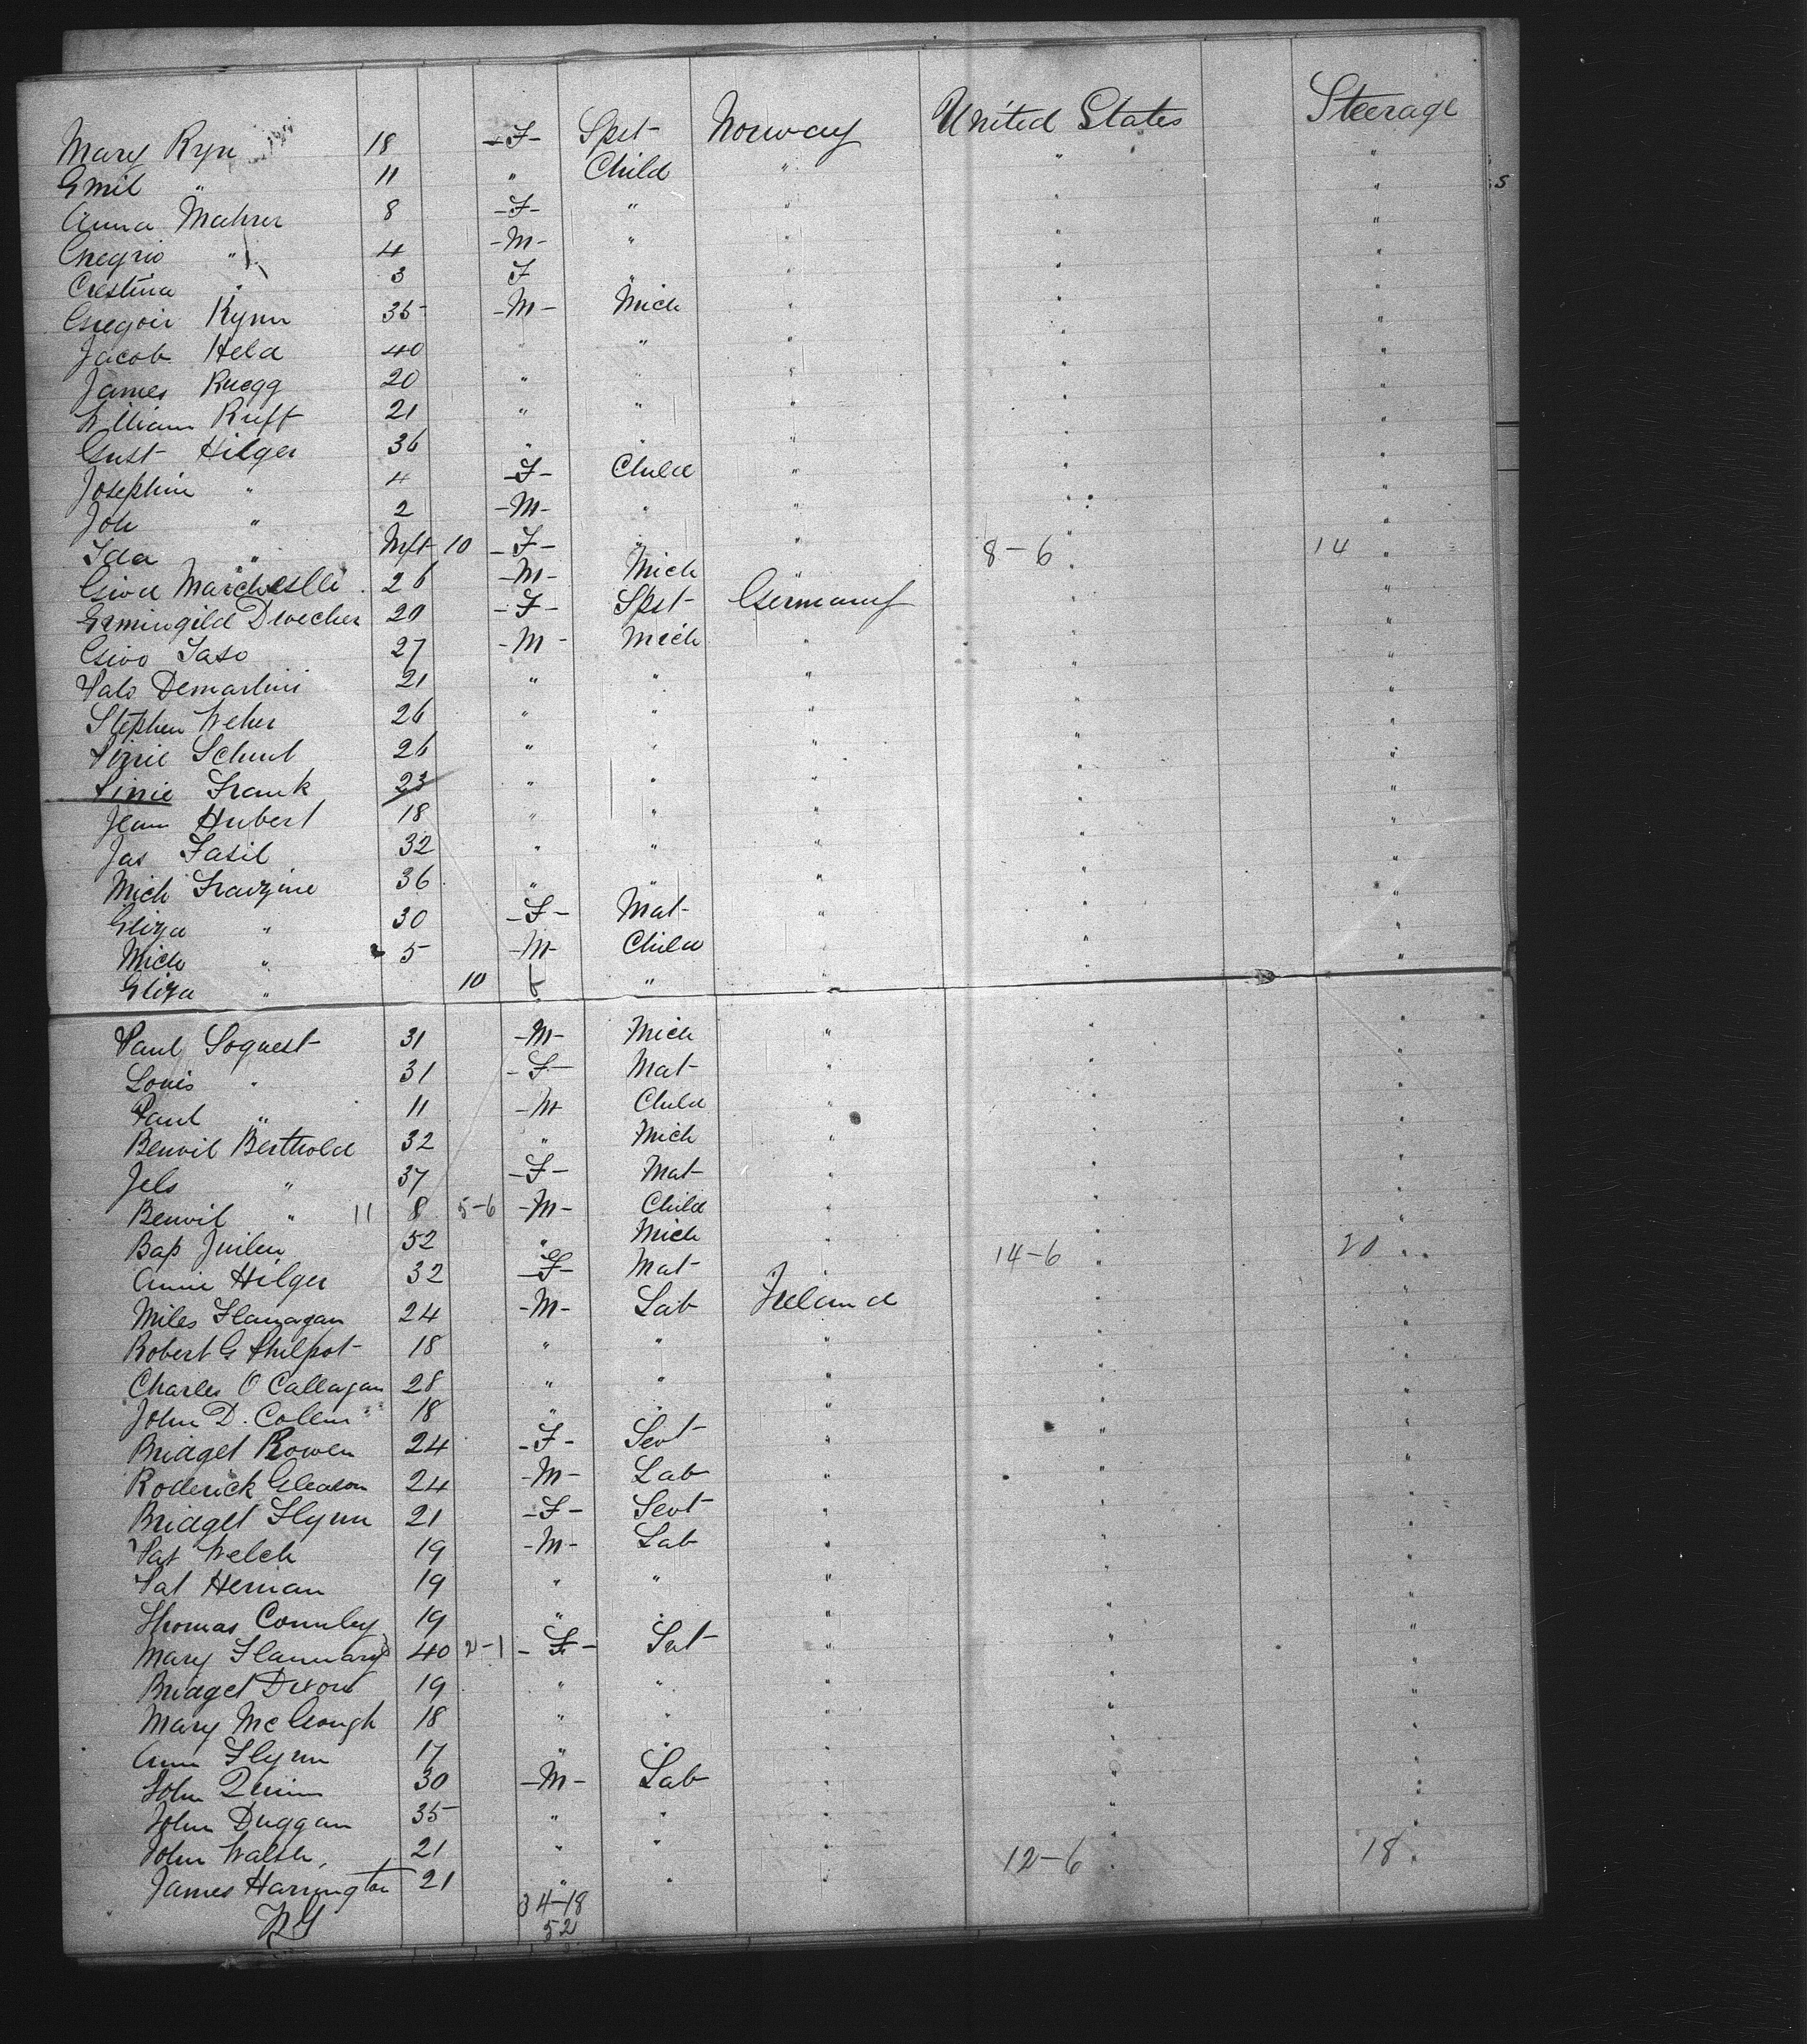 Mary Ryn 18 -F- Spst Norway United States Steerage
Emil " 11 " Child " " "
Anna Mahrer 8 -F- " " " "
4 -M- " " " "
Crestina " 3 F " " " "
Gregoir Rynn 35 -M- Mich " " "
Jacob Held 40 " " " " "
James Ruegg 20 " " " " "
William Ruff 21 " " " " "
Gust Hilger 36 " " " " "
Josephine " 4 -F- Child " " "
Joh " 2 -M- " " " "
Ida " Inft 10 -F- " " 8-6 " 14 "
Giva 26 -M- Mich " " "
20 -F- Spst Germany " "
Givo Saso 27 -M- Mich " " "
Palo Demartini 21 " " " " "
Stephen Weber 26 " " " " "
26 " " " " "
Frank 23 " " " " "
Jean Hubert 18 " " " " "
Jas Fasil 32 " " " " "
Mich 36 " " " " "
Eliza " 30 -F- Mat " " "
Mich " 5 -M- Child " " "
Eliza " 10 f " " " "
Paul Soquest 31 -M- Mich " " "
Louis " 31 -F- Mat " " "
Paul " 11 -M- Child " " "
Benvil Berthold 32 " Mich " " "
Jels " 37 -F- Mat " " "
Benvil " 11 8 5-6 -M- Child " " "
Bap 52 " Mich " 14-6 " 20 "
Annie Hilger 32 -F- Mat " " "
Miles Flanagan 24 -M- Lab Ireland " "
Robert G Philpot 18 " " " " "
Charles O Callagan 28 " " " " "
John D. Colem 18 " " " " "
Bridget Rowen 24 -F- Sevt " " "
Roderick Gleason 24 -M- Lab " " "
Bridget Flynn 21 -F- Sevt " " "
Pat Welch 19 -M- Lab " " "
Pat Hernan 19 " " " " "
Thomas Connley 19 " " " " "
Mary Flannary 40 2-1 -F- Svt " " "
Bridget Dixon 19 " " " " "
Mary McGough 18 " " " " "
Ann Flynn 17 " " " " "
John Quinn 30 -M- Lab " " "
John Duggan 35 " " " " "
John Walsh, 21 " " " 12-6 " 18 "
James Harrington 21 " " " " "
34-18
52